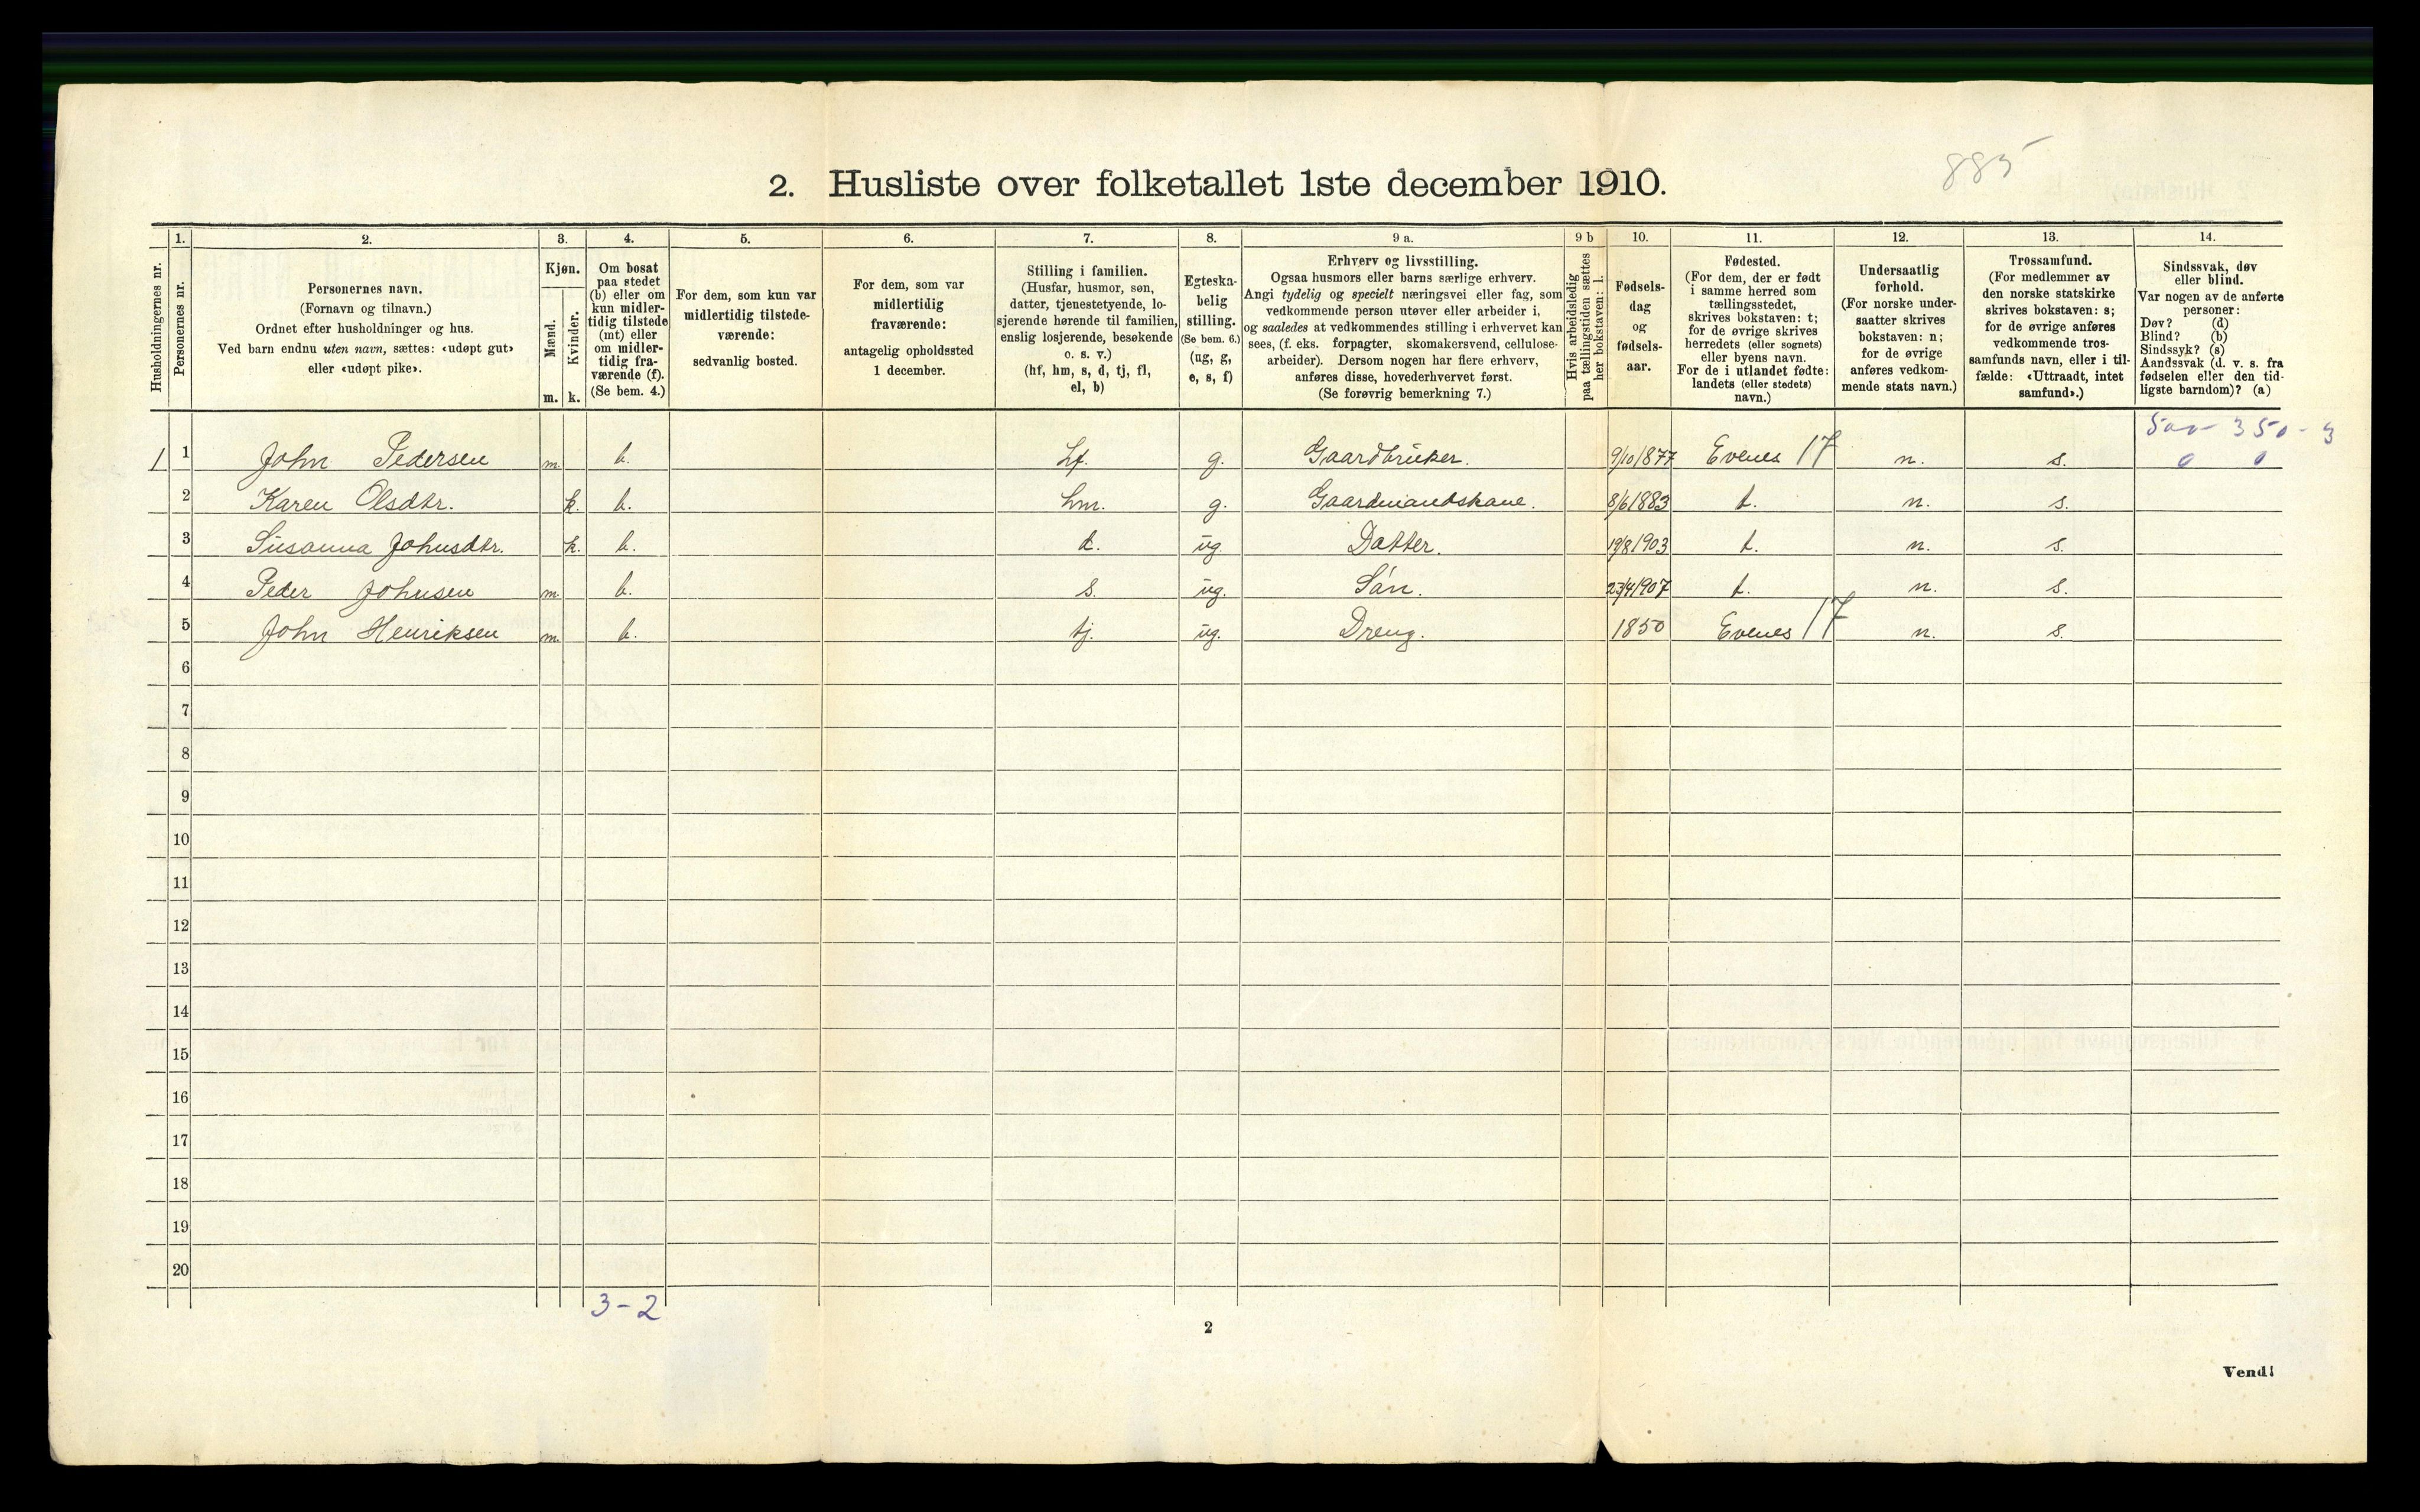 885
2. Husliste over folketallet 1ste december 1910.
Husholdningernes nr.
1.
Personernes nr.
2.
Personernes navn.
(Fornavn og tilnavn.)
Ordnet efter husholdninger og hus.
Ved barn endnu uten navn, sættes: «udøpt gut»
eller «udøpt pike».
3.
Kjøn.
Mænd.
Kvinder.
m. k.
4.
Om bosat
paa stedet
(b) eller om
kun midler-
tidig tilstede
(mt) eller
om midler-
tidig fra-
værende (f).
(Se bem. 4.)
5.
For dem, som kun var
midlertidig tilstede-
værende:
sedvanlig bosted.
6.
For dem, som var
midlertidig
fraværende:
antagelig opholdssted
1 december.
7.
Stilling i familien.
(Husfar, husmor, søn,
datter, tjenestetyende, lo-
sjerende hørende til familien,
enslig losjerende, besøkende
o. s. v.)
(hf, hm, s, d, tj, fl,
el, b)
8.
Egteska-
belig
stilling.
(Se bem. 6.)
(ug, g,
e, s, f)
9 a.
Erhverv og livsstilling.
Ogsaa husmors eller barns særlige erhverv.
Angi tydelig og specielt næringsvei eller fag, som
vedkommende person utøver eller arbeider i,
og saaledes at vedkommendes stilling i erhvervet kan
sees, (f. eks. forpagter, skomakersvend, cellulose-
arbeider). Dersom nogen har flere erhverv,
anføres disse, hovederhvervet først.
(Se forøvrig bemerkning 7.)
9 b
Hvis arbeidsledig
paa tællingstiden sættes
her bokstaven: l.
10.
Fødsels-
dag
og
fødsels-
aar.
11.
Fødested.
(For dem, der er født
i samme herred som
tællingsstedet,
skrives bokstaven: t;
for de øvrige skrives
herredets (eller sognets)
eller byens navn.
For de i utlandet fødte:
landets (eller stedets)
navn.)
12.
Undersaatlig
forhold.
(For norske under-
saatter skrives
bokstaven: n;
for de øvrige
anføres vedkom-
mende stats navn.)
13.
Trossamfund.
(For medlemmer av
den norske statskirke
skrives bokstaven: s;
for de øvrige anføres
vedkommende tros-
samfunds navn, eller i til-
fælde: «Uttraadt, intet
samfund».)
14.
Sindssvak, døv
eller blind.
Var nogen av de anførte
personer:
Døv? (d)
Blind? (b)
Sindssyk? (s)
Aandssvak (d. v. s. fra
fødselen eller den tid-
ligste barndom)? (a)
350 - 3
1 1 John Pedersen m. b. hf. g. Gaardbruker. 9/10 1877 Evenes 17 n. s. 0 0
2 Karen Olsdtr. k. b. hm. g. Gaardmandskone. 8/6 1883 t. n. s.
3 Susanna Johnsdtr. k. b. d. ug. Datter. 19/8 1903 t. n. s.
4 Peder Johnsen m. b. s. ug. Sön. 23/4 1907 t. n. s.
5 John Henriksen m. b. tj. ug. Dreng. 1850 Evenes 17 n. s.
6
7
8
9
10
11
12
13
14
15
16
17
18
19
20
3-2
2
Vend!